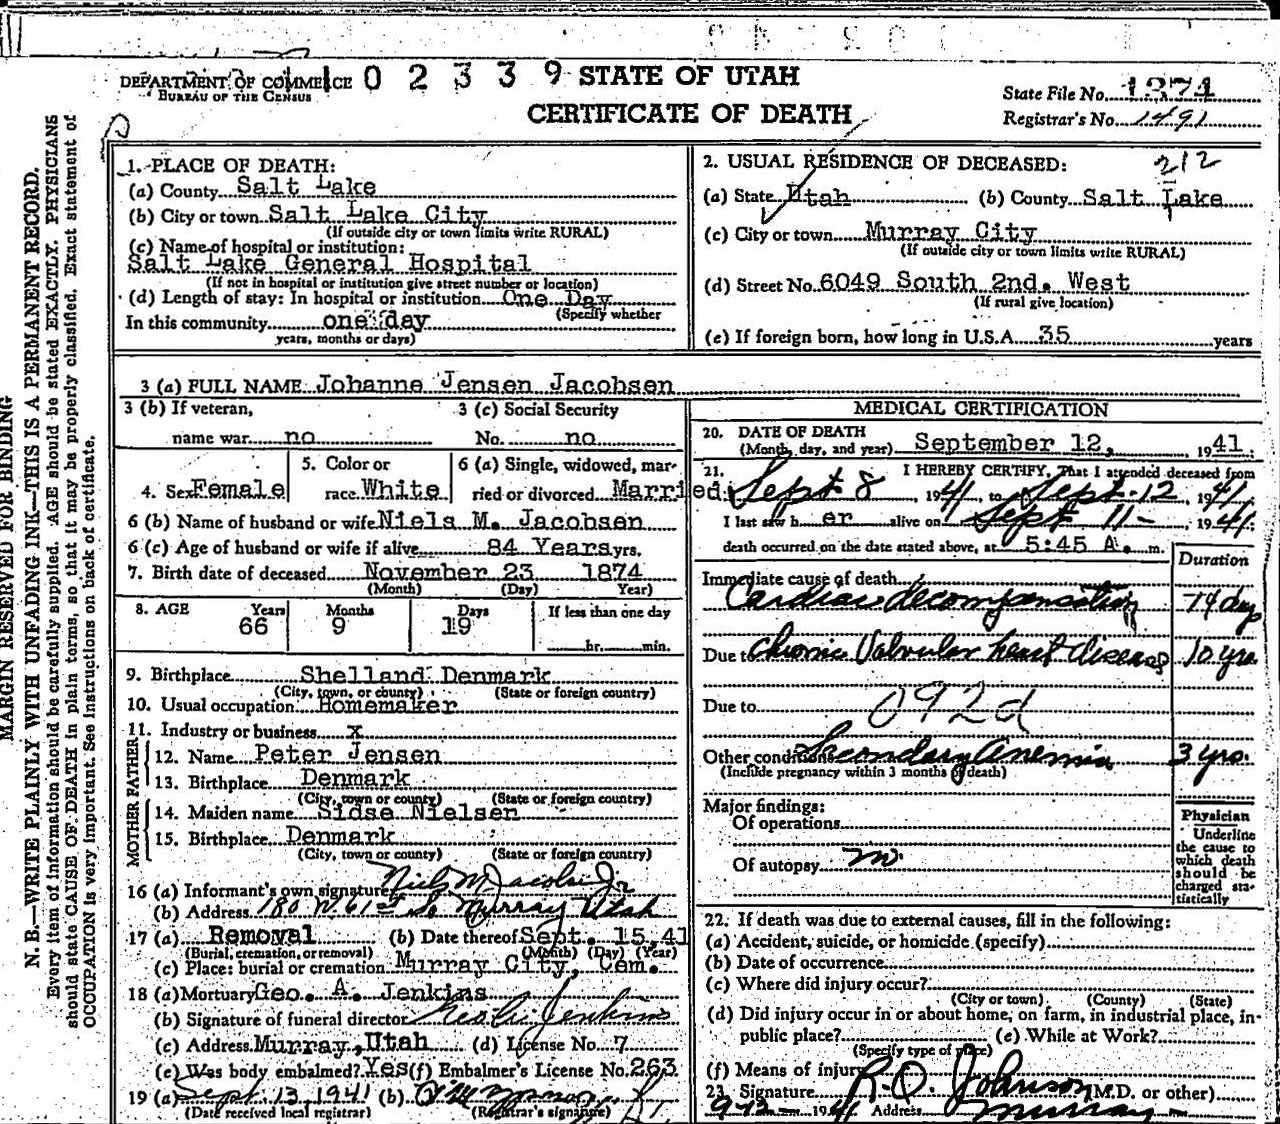 DEPARTMENT OF COMMERCE
BUREAU OF THE CENSUS
02339
STATE OF UTAH
CERTIFICATE OF DEATH
State File No. 1371
Registrar's No. 1491
MARGIN RESERVED FOR BINDING
N. B.—WRITE PLAINLY WITH UNFADING INK—THIS IS A PERMANENT RECORD.
Every item of information should be carefully supplied. AGE should be stated EXACTLY. PHYSICIANS
should state CAUSE OF DEATH in plain terms, so that it may be properly classified. Exact statement of
OCCUPATION is very important. See instructions on back of certificate.
1. PLACE OF DEATH:
(a) County Salt Lake
(b) City or town Salt Lake City
(If outside city or town limits write RURAL)
(c) Name of hospital or institution:
Salt Lake General Hospital
(If not in hospital or institution give street number or location)
(d) Length of stay: In hospital or institution One Day
(Specify whether
In this community one day
years, months or days)
2. USUAL RESIDENCE OF DECEASED: 212
(a) State Utah (b) County Salt Lake
(c) City or town Murray City
(If outside city or town limits write RURAL)
(d) Street No. 6049 South 2nd. West
(If rural give location)
(e) If foreign born, how long in U.S.A. 35 years
3 (a) FULL NAME Johanne Jensen Jacobsen
3 (b) If veteran, 3 (c) Social Security
name war no No. no
4. Sex Female 5. Color or race White 6 (a) Single, widowed, married or divorced Married
6 (b) Name of husband or wife Niels M. Jacobsen
6 (c) Age of husband or wife if alive 84 Years yrs.
7. Birth date of deceased November 23 1874
(Month) (Day) Year)
8. AGE Years Months Days If less than one day
66 9 19 hr. min.
9. Birthplace Shelland Denmark
(City, town, or county) (State or foreign country)
10. Usual occupation Homemaker
11. Industry or business x
FATHER
12. Name Peter Jensen
13. Birthplace Denmark
(City, town or county) (State or foreign country)
MOTHER
14. Maiden name Sidse Nielsen
15. Birthplace Denmark
(City, town or county) (State or foreign country)
16 (a) Informant's own signature Niels M Jacobsen Jr
(b) Address 180 W. 61st So Murray Utah
17 (a) Removal (b) Date thereof Sept. 15, 41
(Burial, cremation, or removal) (Month) (Day) (Year)
(c) Place: burial or cremation Murray City, Cem.
18 (a) Mortuary Geo. A. Jenkins
(b) Signature of funeral director Jenkins
(c) Address Murray, Utah (d) License No. 7
(e) Was body embalmed? Yes (f) Embalmer's License No. 263
19 (a) Sept 13, 1941 (b)
(Date received local registrar) (Registrar's signature)
MEDICAL CERTIFICATION
20. DATE OF DEATH
(Month, day, and year) September 12, 1941.
21. I HEREBY CERTIFY, That I attended deceased from
Sept 8, 1941, to Sept. 12, 1941.
I last saw h er alive on Sept 11-, 1941.
death occurred on the date stated above, at 5:45 A. m.
Duration
Immediate cause of death
Cardiac decompensation 14 days
Due to chronic Valvular heart disease 10 yrs
Due to 092d
Other conditions Secondary Anemia 3 yrs.
(Include pregnancy within 3 months of death)
Major findings:
Of operations
Of autopsy no.
Physician
Underline
the cause to
which death
should be
charged sta-
tistically
22. If death was due to external causes, fill in the following:
(a) Accident, suicide, or homicide (specify)
(b) Date of occurrence
(c) Where did injury occur?
(City or town) (County) (State)
(d) Did injury occur in or about home, on farm, in industrial place, in-
public place? (e) While at Work?
(Specify type of place)
(f) Means of injury
23. Signature R.O. Johnson (M.D. or other)
9-12- 1941 Address Murray